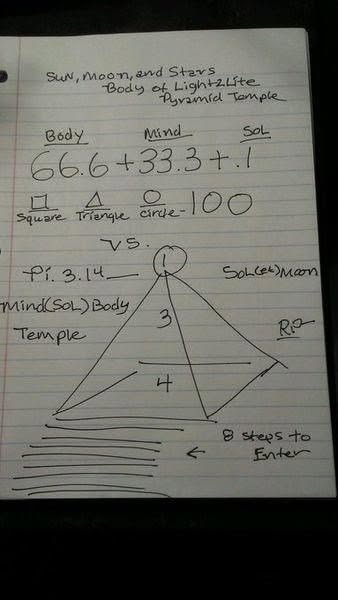 Sun, Moon, and Stars
Body of Light2Lite
Pyramid Temple
Body Mind SoL
66.6+33.3+.1
Square Triangle Circle-100
VS.
Pi. 3.14
1
SoL(et)Moon
Mind(SoL)Body
Temple
3
4
8 steps to
Enter